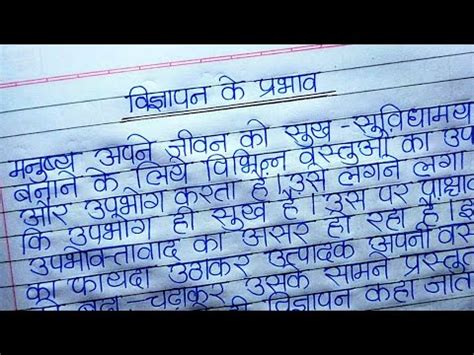 विज्ञापन के प्रभाव
मनुष्य अपने जीवन को सुख - सुविधामय
बनाने के लिये विभिन्न वस्तुओं का उप
और उपभोग करता है। उसे लगने लगा
कि उपभोग ही सुख है। उस पर पाश्चा
उपभोक्तावाद का असर हो रहा है।
का फायदा उठाकर उत्पादक अपनी वस्
बढ़ा - चढ़ाकर उसके सामने प्रस्तुत
विज्ञापन कहा जाता